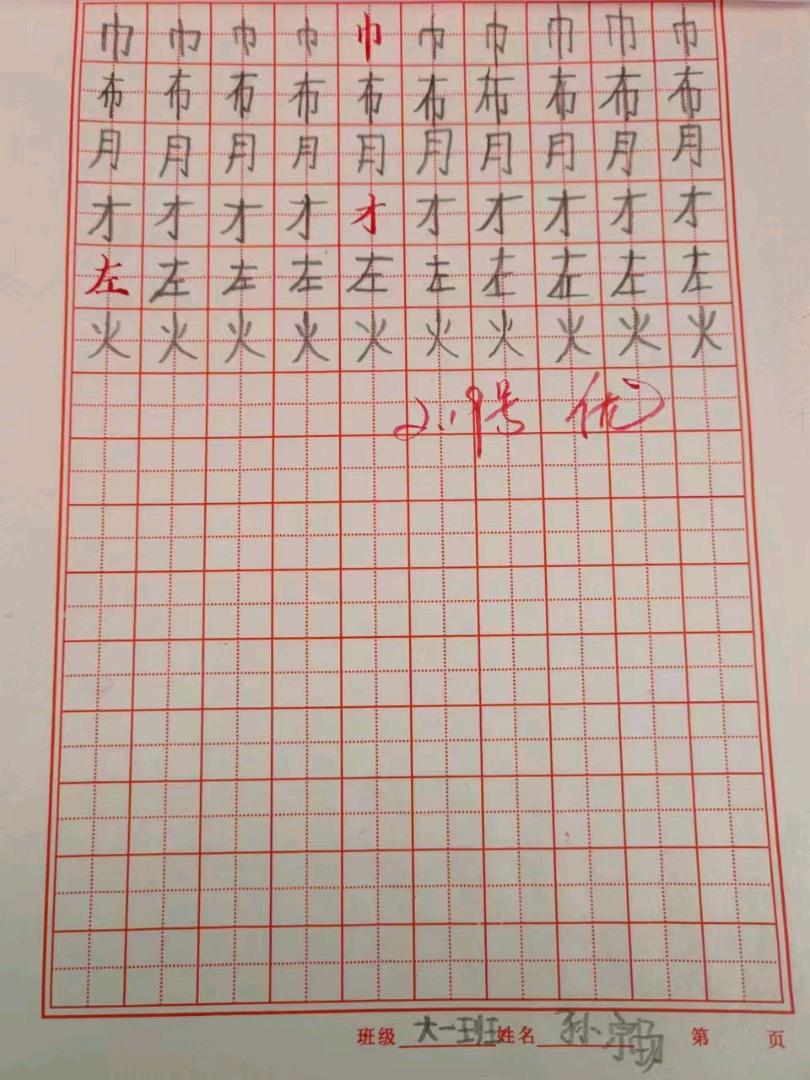 巾巾巾巾巾巾巾巾巾巾
布布布布布布布布布布
月月月月月月月月月月
才才才才才才才才才才
左左左左左左左左左左
火火火火火火火火火火
2.19号 优
班级 大一班 姓名 孙 第 页